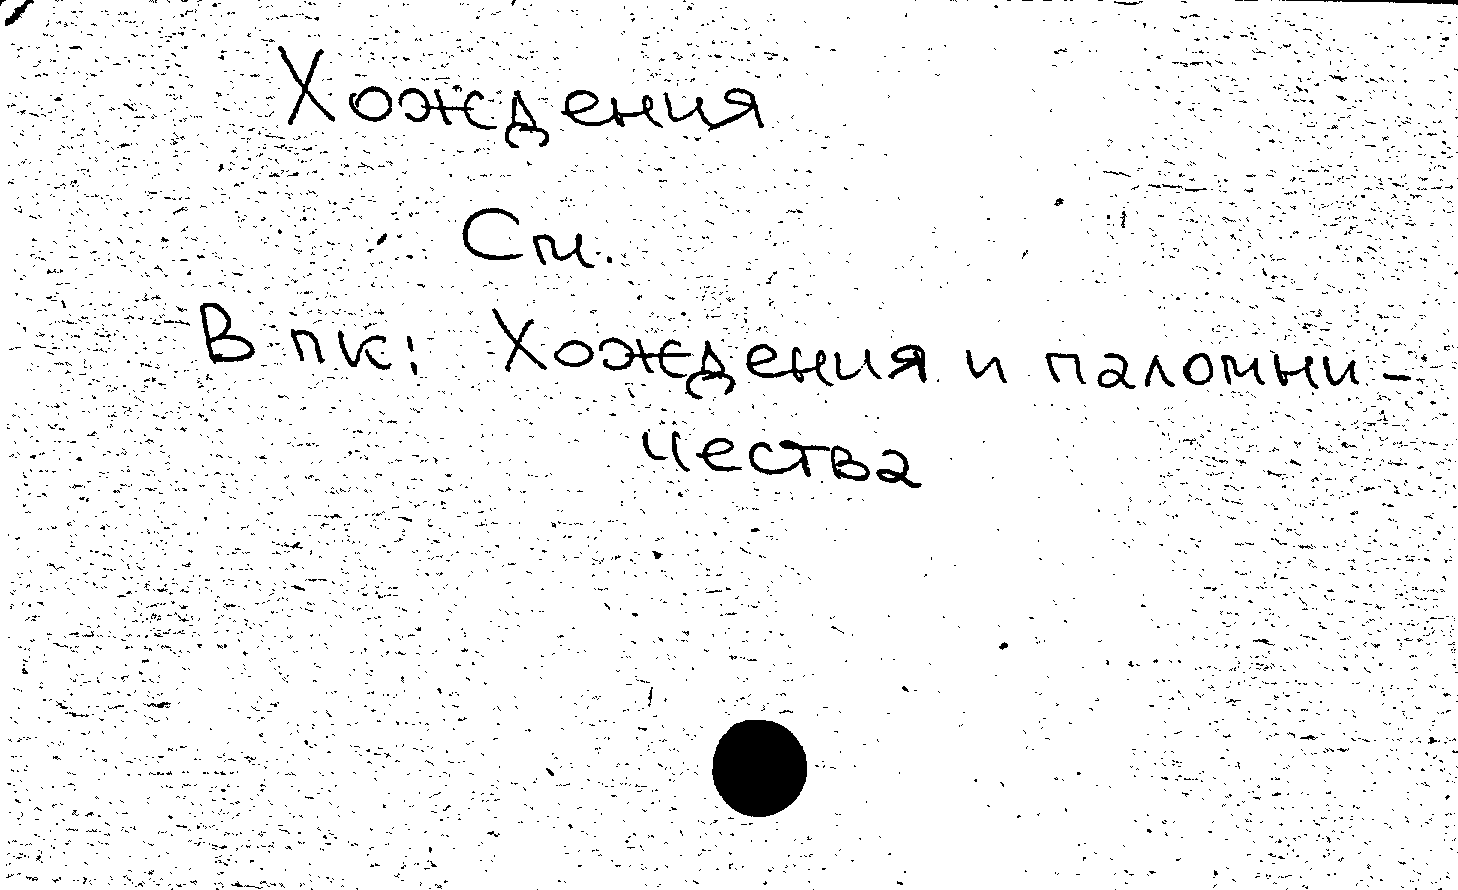 Хождения
См.
В пк: Хождения и паломни-
чества